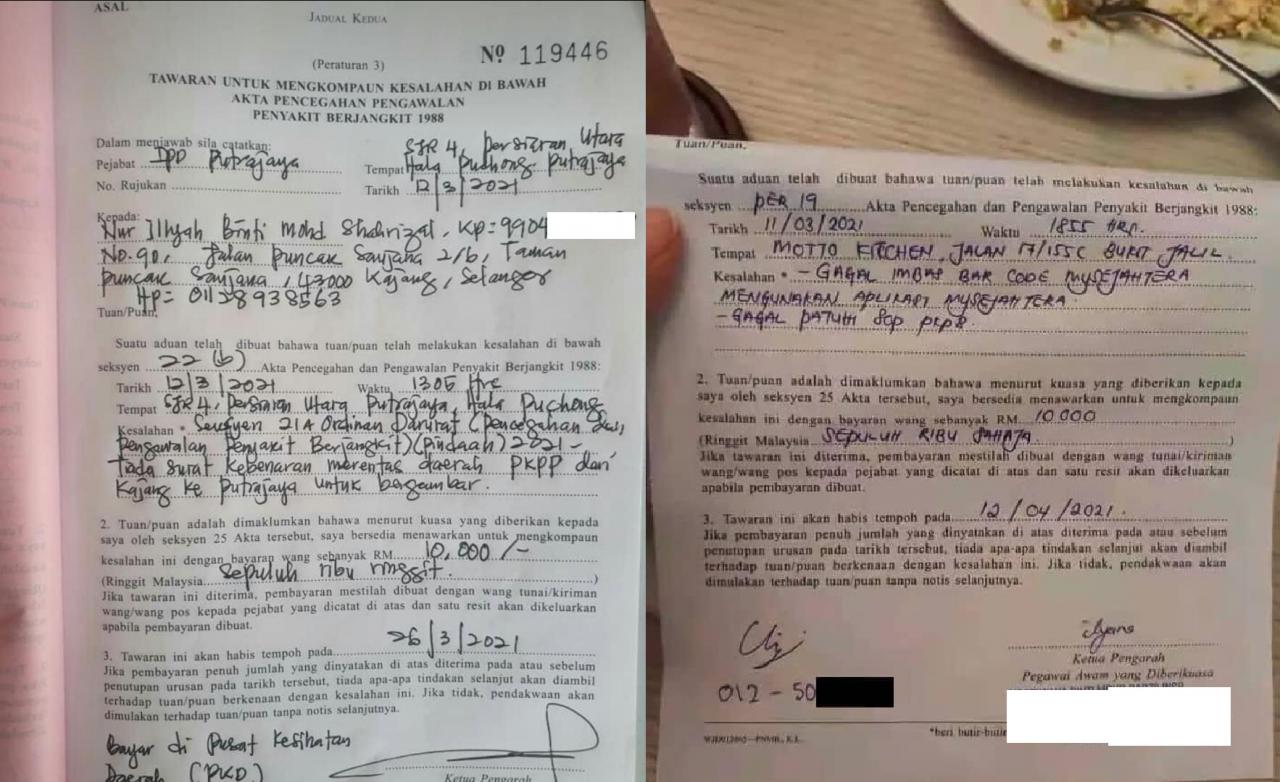 ASAL
JADUAL KEDUA
Nº 119446
(Peraturan 3)
TAWARAN UNTUK MENGKOMPAUN KESALAHAN DI BAWAH
AKTA PENCEGAHAN PENGAWALAN
PENYAKIT BERJANGKIT 1988
Dalam menjawab sila catatkan:
Pejabat IPD Putrajaya
No. Rujukan
SJR 4, Persiaran Utara
Tempat Hala Puchong, Putrajaya
Tarikh 12/3/2021
Kepada:
Nur Illyah Binti Mohd Shahrizal, KP= 99104
No. 90, Jalan Puncak Saujana 2/6, Taman
Puncak Saujana, 43000 Kajang, Selangor
HP= 01128938563
Tuan/Puan,
Suatu aduan telah dibuat bahawa tuan/puan telah melakukan kesalahan di bawah
seksyen 22 (b) Akta Pencegahan dan Pengawalan Penyakit Berjangkit 1988:
Tarikh 12/3/2021 Waktu 1305 Hrs
Tempat SJR 4, Persiaran Utara Putrajaya, Hala Puchong
Kesalahan * Seksyen 21A Ordinan Darurat (Pencegahan dan
Pengawalan Penyakit Berjangkit) (Pindaan) 2021 -
Tiada surat kebenaran merentas daerah PKPP dari
Kajang ke Putrajaya untuk bergambar.
2. Tuan/puan adalah dimaklumkan bahawa menurut kuasa yang diberikan kepada
saya oleh seksyen 25 Akta tersebut, saya bersedia menawarkan untuk mengkompaun
kesalahan ini dengan bayaran wang sebanyak RM 10,000/-
(Ringgit Malaysia sepuluh ribu ringgit. )
Jika tawaran ini diterima, pembayaran mestilah dibuat dengan wang tunai/kiriman
wang/wang pos kepada pejabat yang dicatat di atas dan satu resit akan dikeluarkan
apabila pembayaran dibuat.
3. Tawaran ini akan habis tempoh pada 26/3/2021
Jika pembayaran penuh jumlah yang dinyatakan di atas diterima pada atau sebelum
penutupan urusan pada tarikh tersebut, tiada apa-apa tindakan selanjut akan diambil
terhadap tuan/puan berkenaan dengan kesalahan ini. Jika tidak, pendakwaan akan
dimulakan terhadap tuan/puan tanpa notis selanjutnya.
Bayar di Pusat Kesihatan
Daerah (PKD)
Ketua Pengarah
Tuan/Puan,
Suatu aduan telah dibuat bahawa tuan/puan telah melakukan kesalahan di bawah
seksyen PER 19 Akta Pencegahan dan Pengawalan Penyakit Berjangkit 1988:
Tarikh 11/03/2021 Waktu 1855 HRS.
Tempat MOTTO KITCHEN, JALAN 17/155C BUKIT JALIL
Kesalahan * - GAGAL IMBAS BAR CODE MYSEJAHTERA
MENGUNAKAN APLIKASI MYSEJAHTERA.
- GAGAL PATUH SOP PKPB.
2. Tuan/puan adalah dimaklumkan bahawa menurut kuasa yang diberikan kepada
saya oleh seksyen 25 Akta tersebut, saya bersedia menawarkan untuk mengkompaun
kesalahan ini dengan bayaran wang sebanyak RM 10.000
(Ringgit Malaysia SEPULUH RIBU SAHAJA. )
Jika tawaran ini diterima, pembayaran mestilah dibuat dengan wang tunai/kiriman
wang/wang pos kepada pejabat yang dicatat di atas dan satu resit akan dikeluarkan
apabila pembayaran dibuat.
3. Tawaran ini akan habis tempoh pada 12/04/2021.
Jika pembayaran penuh jumlah yang dinyatakan di atas diterima pada atau sebelum
penutupan urusan pada tarikh tersebut, tiada apa-apa tindakan selanjut akan diambil
terhadap tuan/puan berkenaan dengan kesalahan ini. Jika tidak, pendakwaan akan
dimulakan terhadap tuan/puan tanpa notis selanjutnya.
012 - 50
Ketua Pengarah
Pegawai Awam yang Diberikuasa
*beri butir-butir